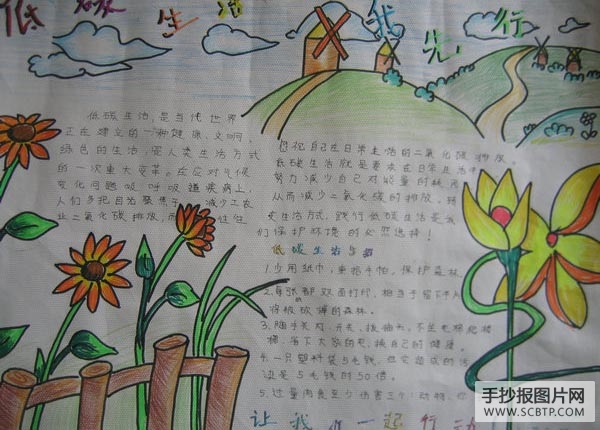 低碳生活 我先行
低碳生活,是当代世界
正在建立的一种健康、文明、
绿色的生活,是人类生活方式
的一次重大变革。在应对气候
变化问题
人们多把目光聚焦于 减少工农
业二氧化碳排放
自己在日常生活的二氧化碳排放。
低碳生活就是要求在日常生活中
努力减少自己对能量的耗
从而减少二氧化碳的排放。
变生活方式,践行低碳生活是我
们保护环境的必然选择!
低碳生活
1.少用纸巾,重拾手帕,保护森林
2.每张 都双面打印,相当于留下半片
将被砍掉的森林。
3.随手关灯、开关、拔插头,不坐电梯爬楼
梯,省下大家的电,换自己的健康。
4.一只塑料袋5毛钱,但它造成的污
染是5毛钱的50倍。
5.过量肉食至少伤害三个:动物、你
让我们一起行动!
手抄报图片网
WWW.SCBTP.COM